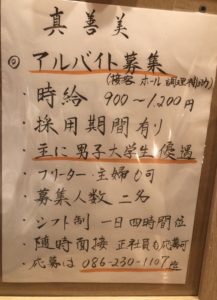 真善美
◎アルバイト募集
(接客 ホール 調理補助)
・時給 900〜1,200円
・採用期間有り
・主に男子大学生優遇
・フリーター・主婦も可
・募集人数 二名
・シフト制 一日四時間位
・随時面接 正社員も応募可
・応募は 086-230-1107迄